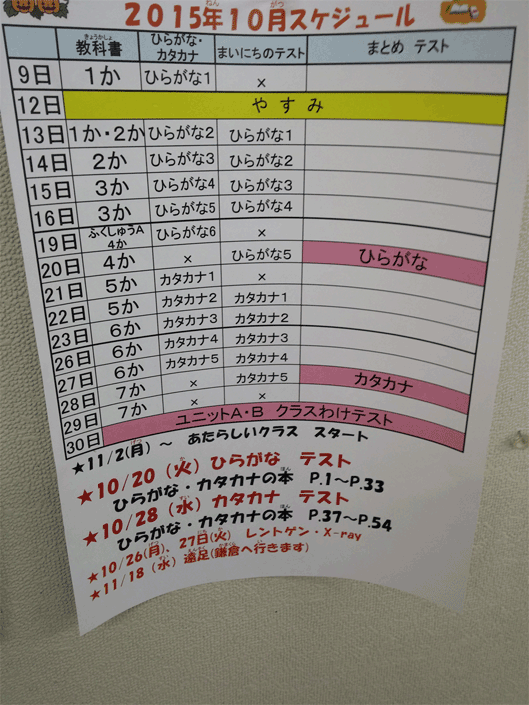 2015年10月スケジュール
教科書 ひらがな・カタカナ まいにちのテスト まとめ テスト
9日 1か ひらがな1 ×
12日 やすみ
13日 1か・2か ひらがな2 ひらがな1
14日 2か ひらがな3 ひらがな2
15日 3か ひらがな4 ひらがな3
16日 3か ひらがな5 ひらがな4
19日 ふくしゅうA 4か ひらがな6 ×
20日 4か × ひらがな5 ひらがな
21日 5か カタカナ1 ×
22日 5か カタカナ2 カタカナ1
23日 6か カタカナ3 カタカナ2
26日 6か カタカナ4 カタカナ3
27日 6か カタカナ5 カタカナ4
28日 7か × カタカナ5 カタカナ
29日 7か × ×
30日 ユニットA・B クラスわけテスト
★11/2(月) ～ あたらしいクラス スタート
★10/20(火)ひらがな テスト
ひらがな・カタカナの本 P.1～P.33
★10/28(水)カタカナ テスト
ひらがな・カタカナの本 P.37～P.54
★10/26(月)、27日(火) レントゲン・X-ray
★11/18(水)遠足(鎌倉へ行きます)